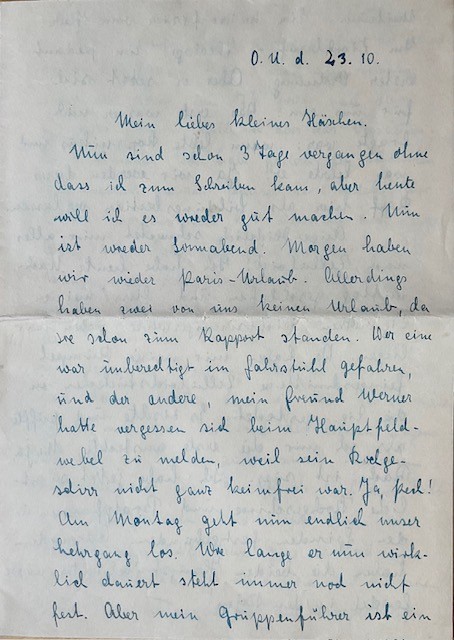 O. U. d. 23. 10.
Mein liebes kleines Häschen.
Nun sind schon 3 Tage vergangen ohne
dass ich zum Schreiben kam, aber heute
will ich es wieder gut machen. Nun
ist wieder Sonnabend. Morgen haben
wir wieder Paris-Urlaub. Allerdings
haben zwei von uns keinen Urlaub, da
sie schon zum Rapport standen. Der eine
war unberechtigt im Fahrstuhl gefahren,
und der andere, mein Freund Werner
hatte vergessen sich beim Hauptfeld-
webel zu melden, weil sein Kochge-
schirr nicht ganz keimfrei war. Ja, Pech!
Am Montag geht nun endlich unser
Lehrgang los. Wie lange er nun wirk-
lich dauert steht immer noch nicht
fest. Aber mein Gruppenführer ist ein